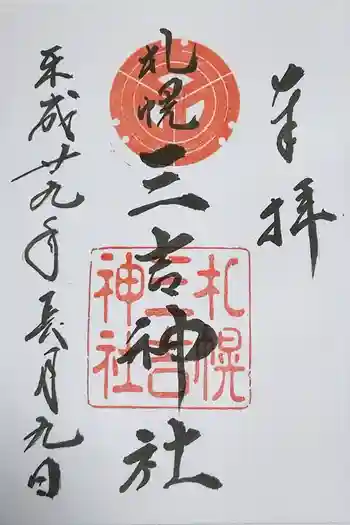 奉拝
札幌
三吉神社
平成廿九年長月九日
札幌
三吉
神社